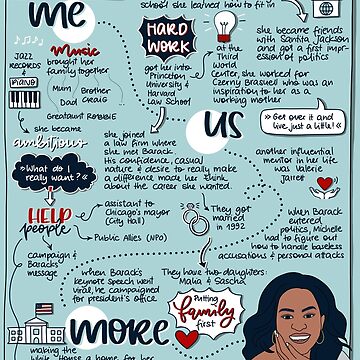 me
school she learned how to fit in
JAZZ
RECORDS &
PIANO
Music
brought her
family together
Mum
Brother
Dad
Craig
Greataunt ROBBIE
HARD
WORK
got her into
Princeton
University &
Harvard
Law School
at the
Third
World
Center, she worked for
Czerny Brasuell who was an
inspiration to her as a
working mother
she became friends
with Santita Jackson
and got a first
impression
of politics
us
» Get over it and
live just a little! «
she became
ambitious
» What do I
really want? «
she joined
a law firm where
she met Barack.
His confidence, casual
nature & desire to really make
a difference made her think
about the career she wanted.
another influential
mentor in her life
was Valerie
Jarret
HELP
people
assistant to
Chicago's mayor
(City Hall)
Public Allies (NPO)
campaign &
Barack's
message
They got
married
in 1992
when Barack
entered
politics, Michelle
had to figure out
how to handle baseless
accusations & personal attacks
when Barack's
keynote speech went
viral, he campaigned
for president's office
They have two daughters:
Malia & Sascha
Putting
family
first
more
making the
White House a home for her